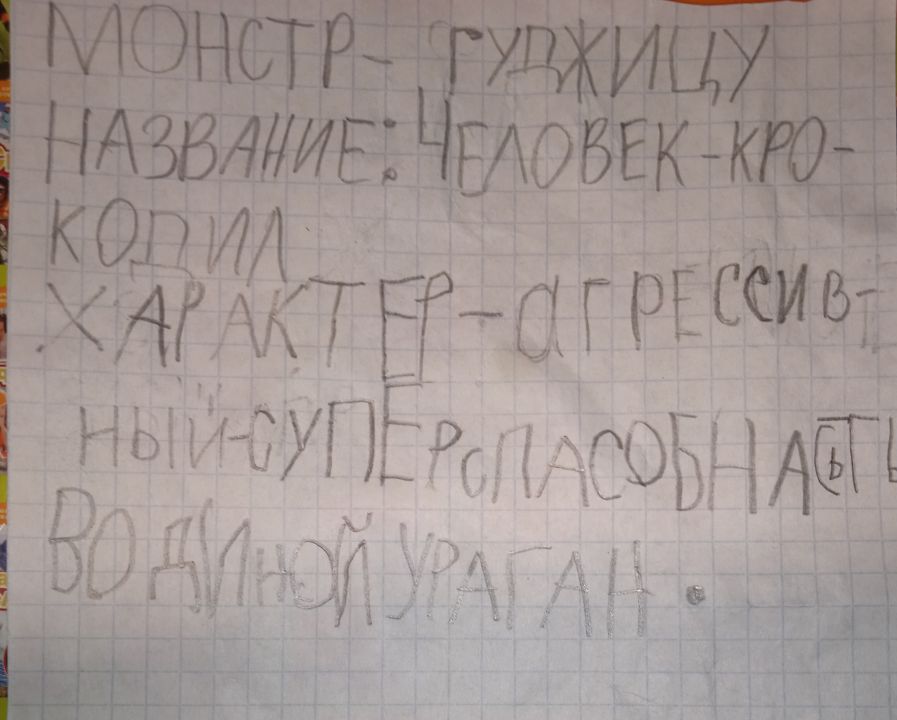 МОНСТР- ГУДЖИЦУ
НАЗВАНИЕ: ЧЕЛОВЕК-КРО-
КОДИЛ
ХАРАКТЕР-АГРЕССИВ-
НЫЙ-СУПЕРСПАСОБНАСТЬ
ВОДИНОЙ УРАГАН.